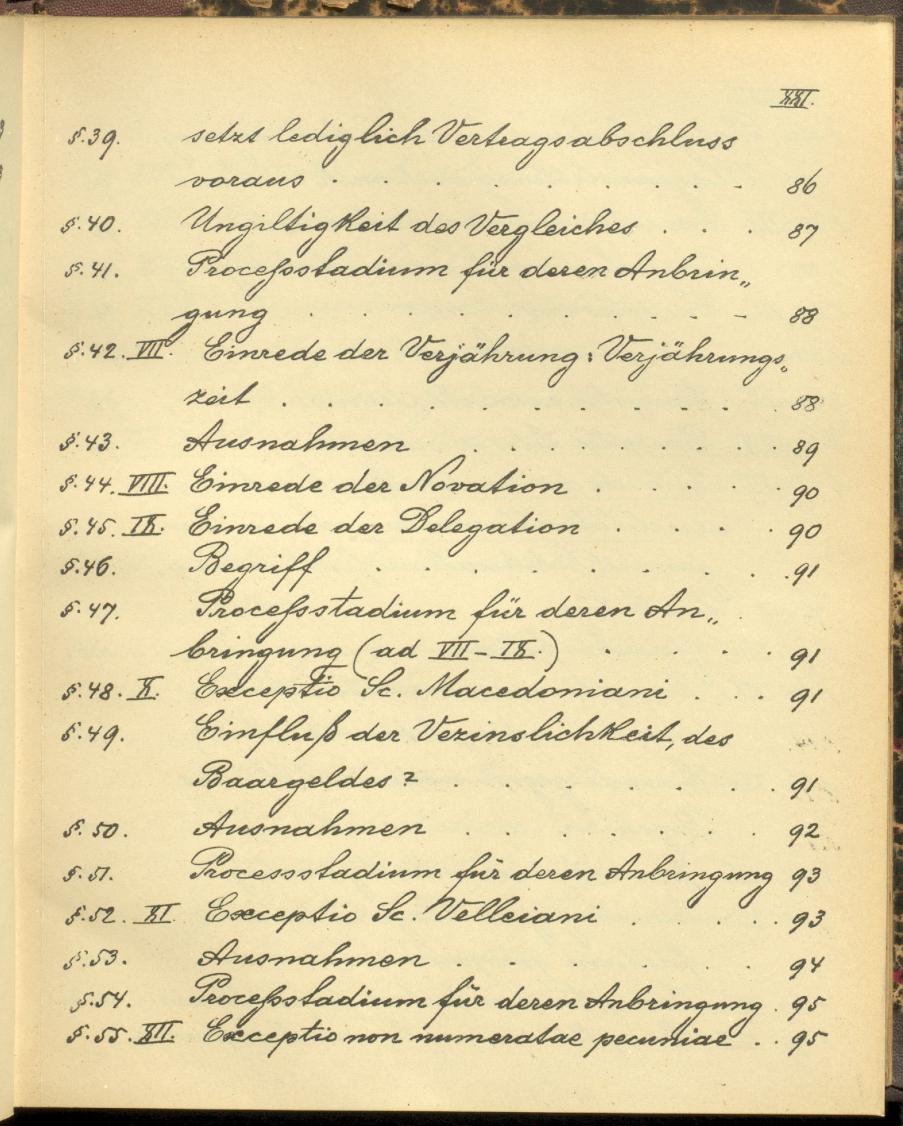 XXI.
§.39. setzt lediglich Vertragsabschluss
voraus . . . . . . . . - 86
§.40. Ungiltigkeit des Vergleiches . . . 87
§.41. Proceſsstadium für deren Anbrin„
gung . . . . . . . . - 88
§.42. VII. Einrede der Verjährung: Verjährungs„
zeit . . . . . . . . . . 88
§.43. Ausnahmen . . . . . . . . 89
§.44. VIII. Einrede der Novation . . . . . 90
§.45. IX. Einrede der Delegation . . . . 90
§.46. Begriff . . . . . . . . . 91
§.47. Proceſsstadium für deren An„
bringung (ad VII - IX.) . . . . 91
§.48. X. Exceptio Sc. Macedoniani . . . 91
§.49. Einfluß der Vezinslichkeit, des
Baargeldes? . . . . . . . 91
§.50. Ausnahmen . . . . . . 92
§.51. Processstadium für deren Anbringung 93
§.52. XI. Exceptio Sc. Velleiani . . . . . 93
§.53. Ausnahmen . . . . . . 94
§.54. Proceſsstadium für deren Anbringung . 95
§.55. XII. Exceptio non numeratae pecuniae . . 95